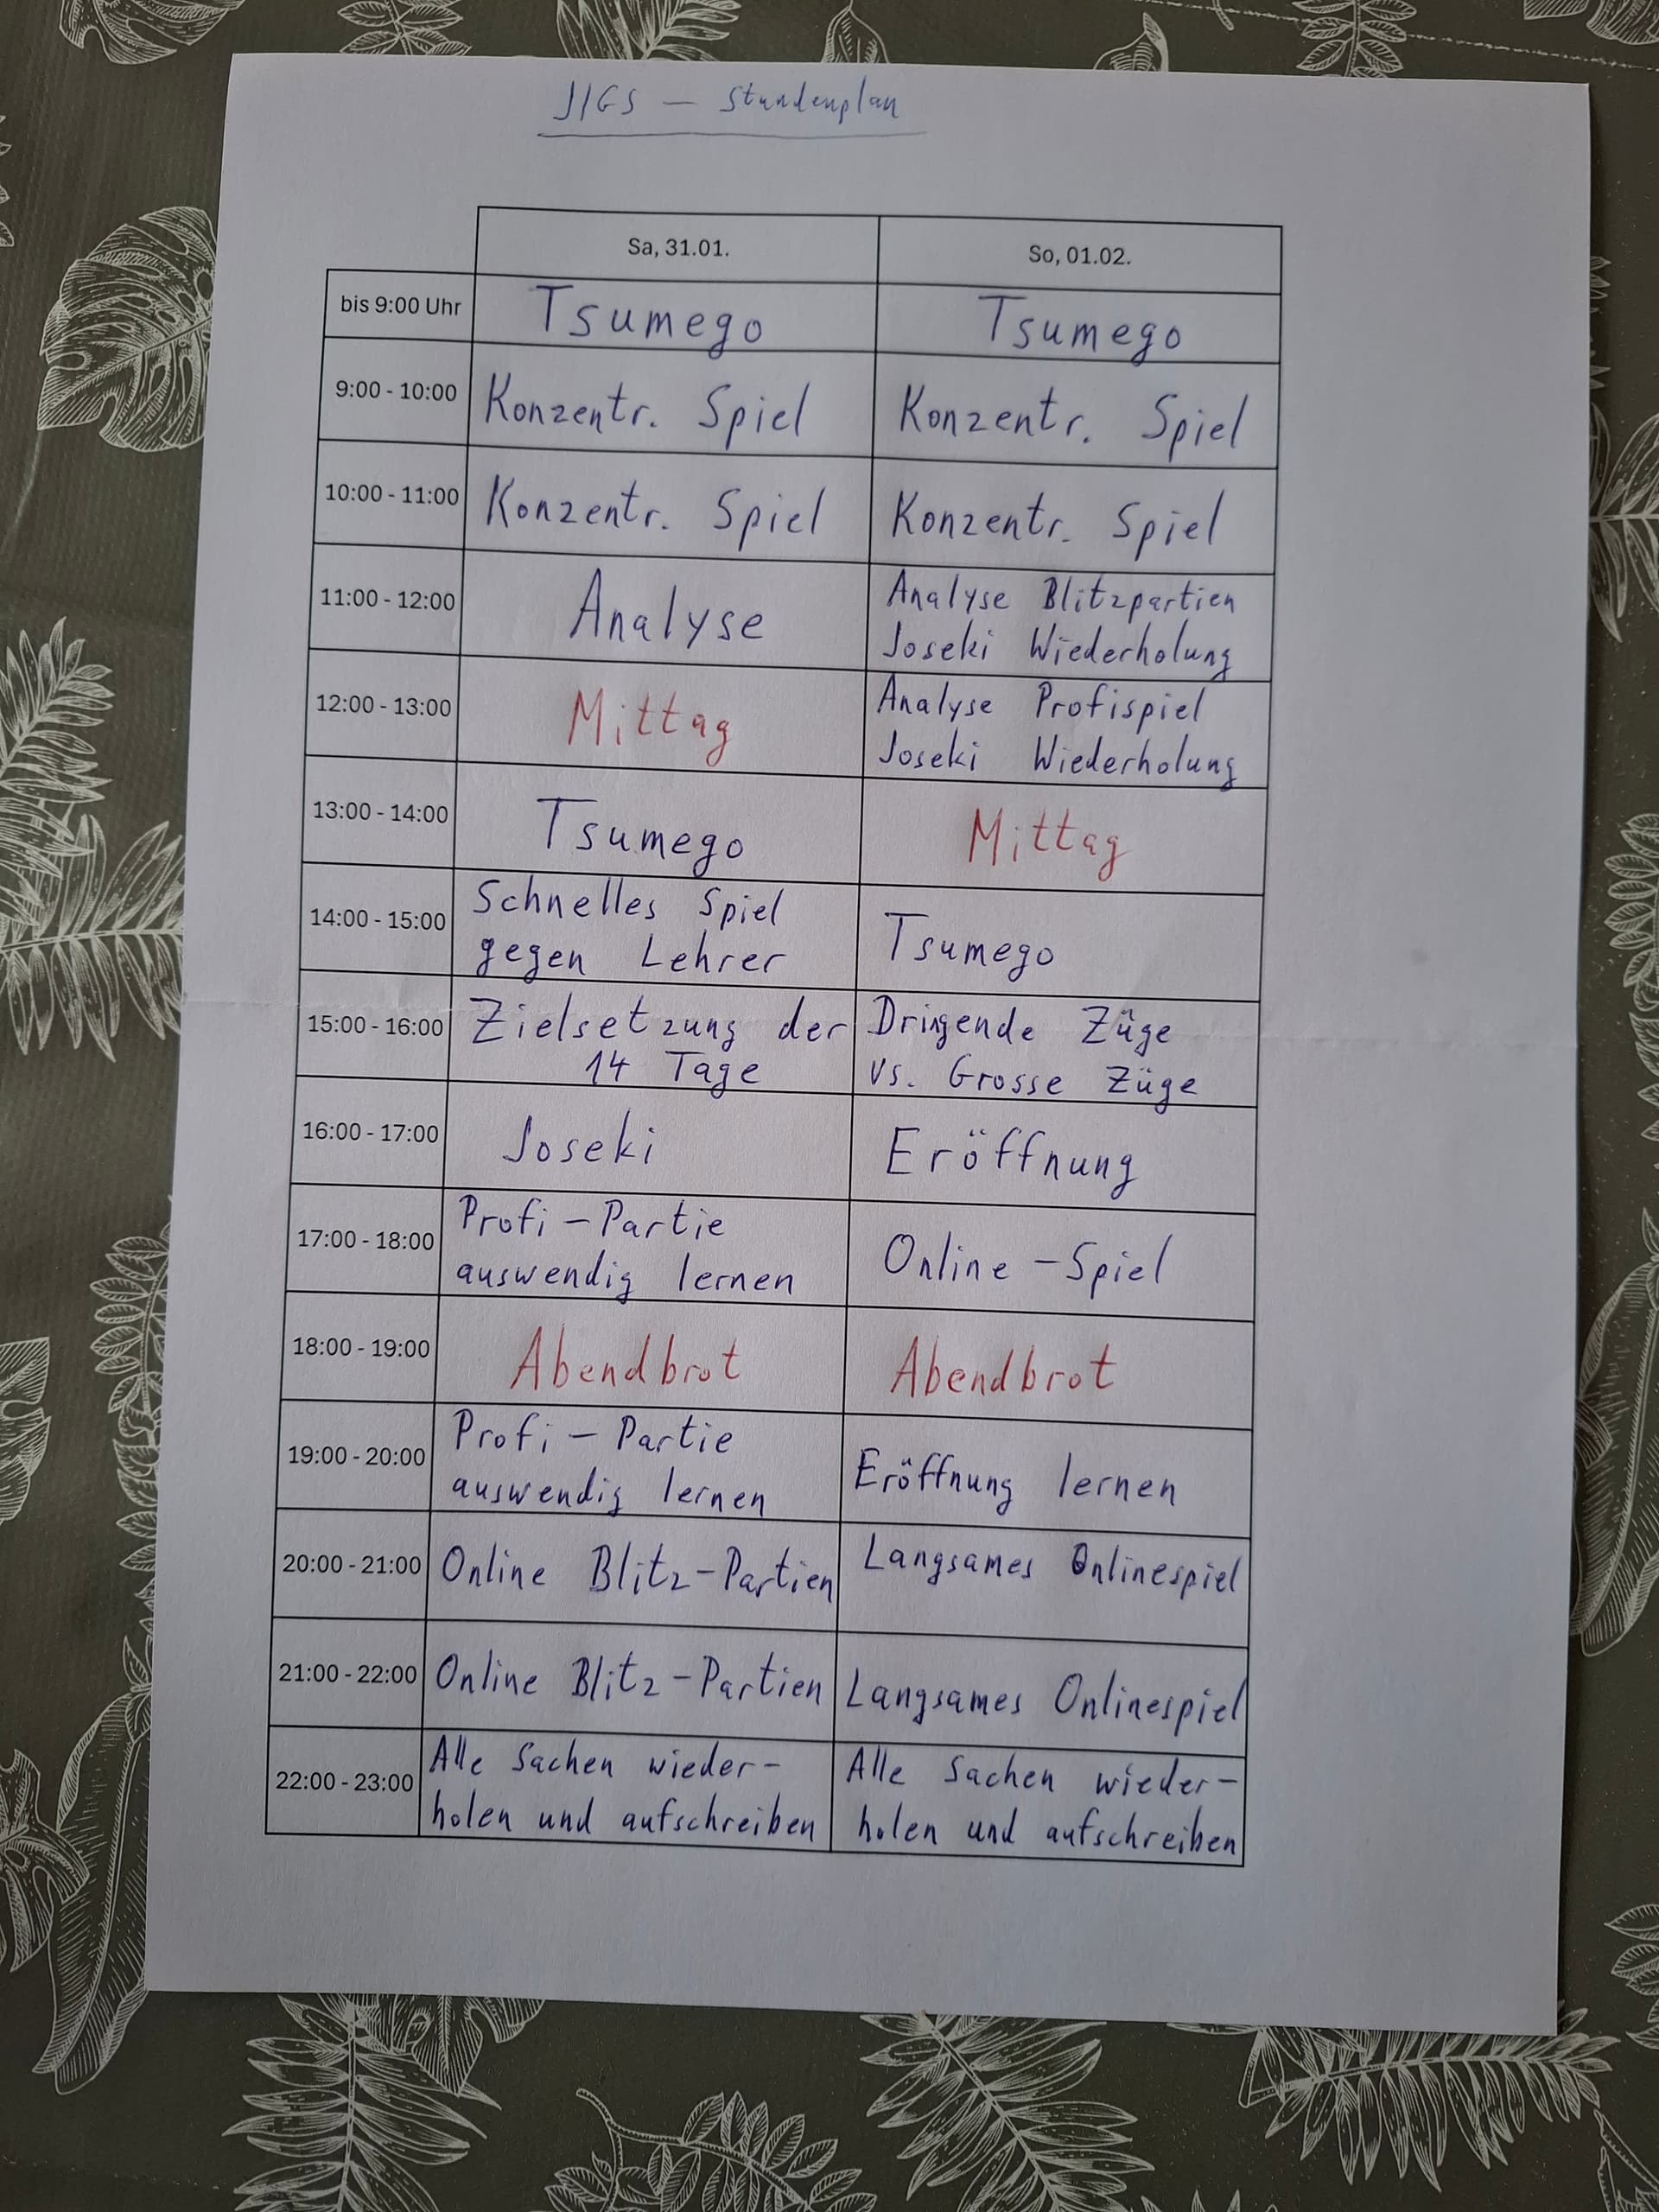 JIGS — Stundenplan
Sa, 31.01. So, 01.02.
bis 9:00 Uhr Tsumego Tsumego
9:00 - 10:00 Konzentr. Spiel Konzentr. Spiel
10:00 - 11:00 Konzentr. Spiel Konzentr. Spiel
11:00 - 12:00 Analyse Analyse Blitzpartien
Joseki Wiederholung
12:00 - 13:00 Mittag Analyse Profispiel
Joseki Wiederholung
13:00 - 14:00 Tsumego Mittag
14:00 - 15:00 Schnelles Spiel
gegen Lehrer Tsumego
15:00 - 16:00 Zielsetzung der
14 Tage Dringende Züge
vs. Grosse Züge
16:00 - 17:00 Joseki Eröffnung
17:00 - 18:00 Profi - Partie
auswendig lernen Online - Spiel
18:00 - 19:00 Abendbrot Abendbrot
19:00 - 20:00 Profi - Partie
auswendig lernen Eröffnung lernen
20:00 - 21:00 Online Blitz-Partien Langsames Onlinespiel
21:00 - 22:00 Online Blitz-Partien Langsames Onlinespiel
22:00 - 23:00 Alle Sachen wieder-
holen und aufschreiben Alle Sachen wieder-
holen und aufschreiben